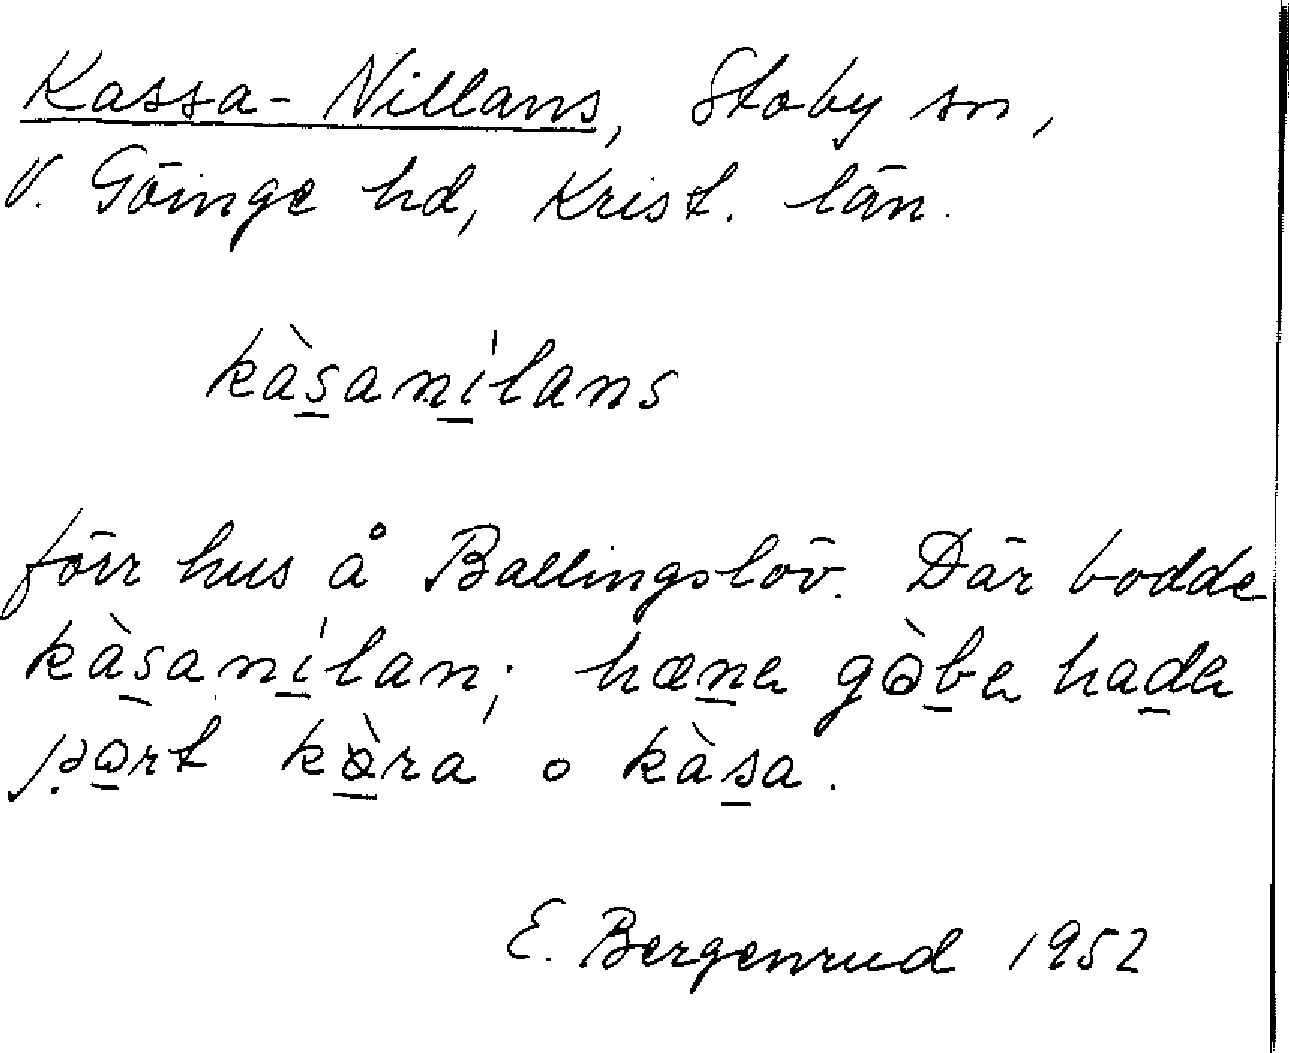 Kassa-Nillans, Stoby sn,
V. Göinge hd, Krist. län.
kàs̲ani̲̍lans
förr hus å Ballingslöv. Där bodde
kàs̲ani̲̍lan; hæn̲ɐ gòb̲ɐ had̲ɐ
kàs̲a.
E. Bergenrud 1952